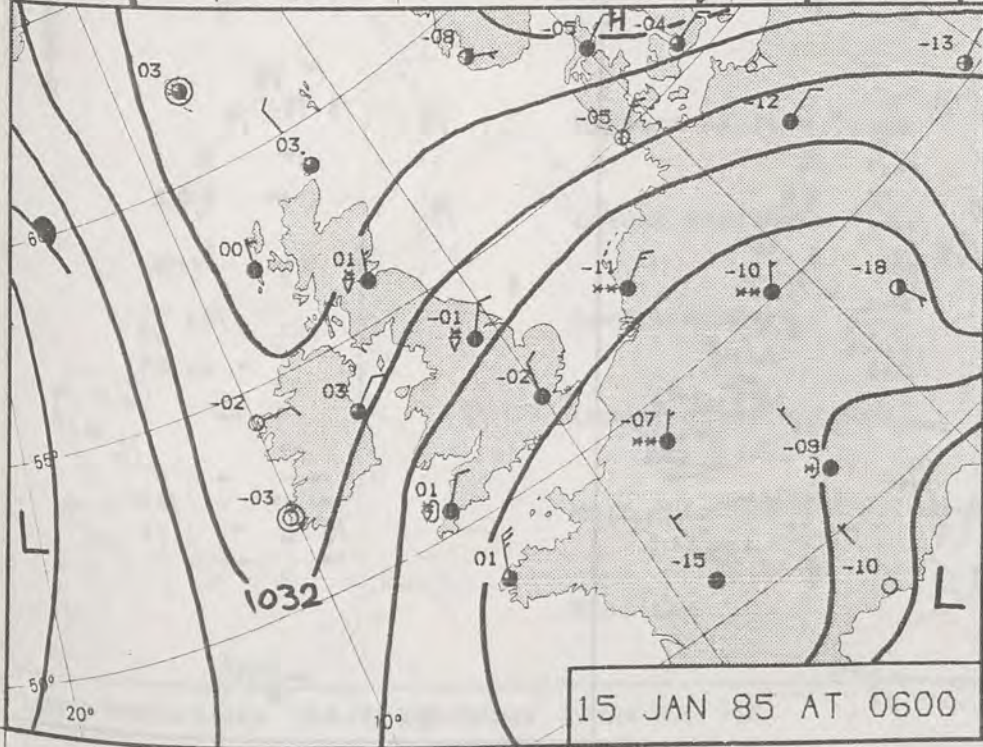 -08
-05
H
-04
-13
03
-12
03
-05
00
01
-11
-10
-18
-01
-02
03
-02
-07
-09
55°
-03
01
L
01
-15
-10
L
1032
50°
20°
10°
15 JAN 85 AT 0600